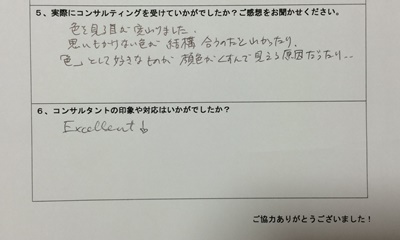 5、実際にコンサルティングを受けていかがでしたか？ご感想をお聞かせください。
色を見る目が変わりました。
思いもかけない色が 結構 合うのだと分かったり、
「色」として好きなものが 顔色がくすんで見える原因だったり…
6、コンサルタントの印象や対応はいかがでしたか？
Excellent
ご協力ありがとうございました！